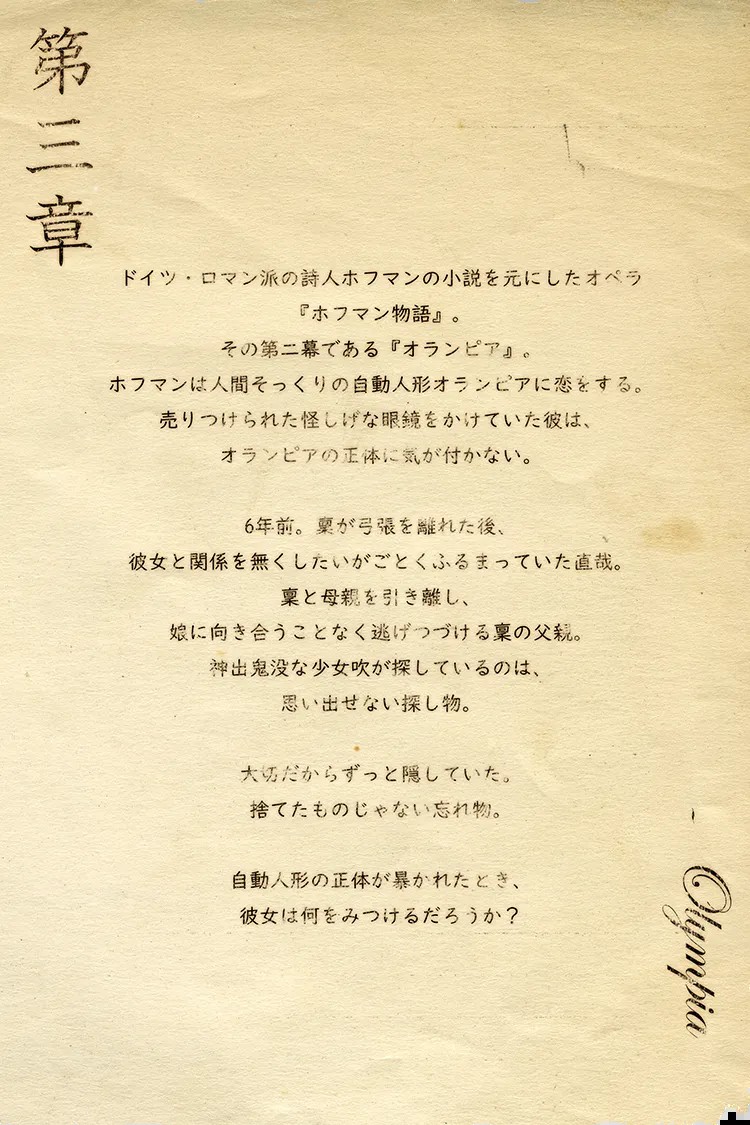 第三章
ドイツ・ロマン派の詩人ホフマンの小説を元にしたオペラ
『ホフマン物語』。
その第二幕である『オランピア』。
ホフマンは人間そっくりの自動人形オランピアに恋をする。
売りつけられた怪しげな眼鏡をかけていた彼は、
オランピアの正体に気が付かない。
6年前。稟が弓張を離れた後、
彼女と関係を無くしたいがごとくふるまっていた直哉。
稟と母親を引き離し、
娘に向き合うことなく逃げつづける稟の父親。
神出鬼没な少女吹が探しているのは、
思い出せない探し物。
大切だからずっと隠していた。
捨てたものじゃない忘れ物。
自動人形の正体が暴かれたとき、
彼女は何をみつけるだろうか？
Olympia